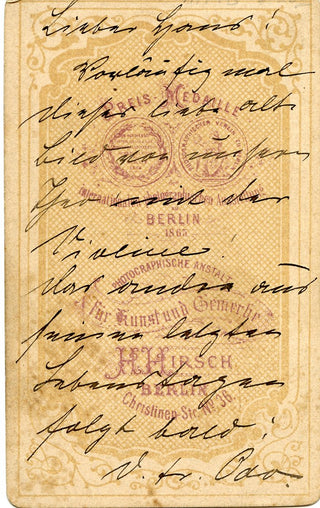 Lieber Hans!
Vorläufig mal
dieses liebe alte
Bild von unserm
Theo mit der
Violine.
Das andre aus
seinen letzten
Lebenstagen
folgt bald!
PREIS MEDAILLE
Internationale Photographische Ausstellung
BERLIN
1865
PHOTOGRAPHISCHE ANSTALT
für Kunst und Gewerbe
H. HIRSCH
BERLIN
Christinen-Str. No. 36.